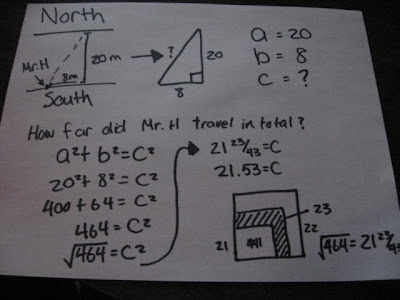 North
20m
Mr.H
8m
South
?
20
8
a = 20
b = 8
c = ?
How far did Mr. H travel in total?
a²+ b² = C²
20²+ 8² = C²
400 + 64 = C²
464 = C²
√464 = C²
21 23/43 = C
21.53 = C
21
441
23
22
√464 = 21 23/43